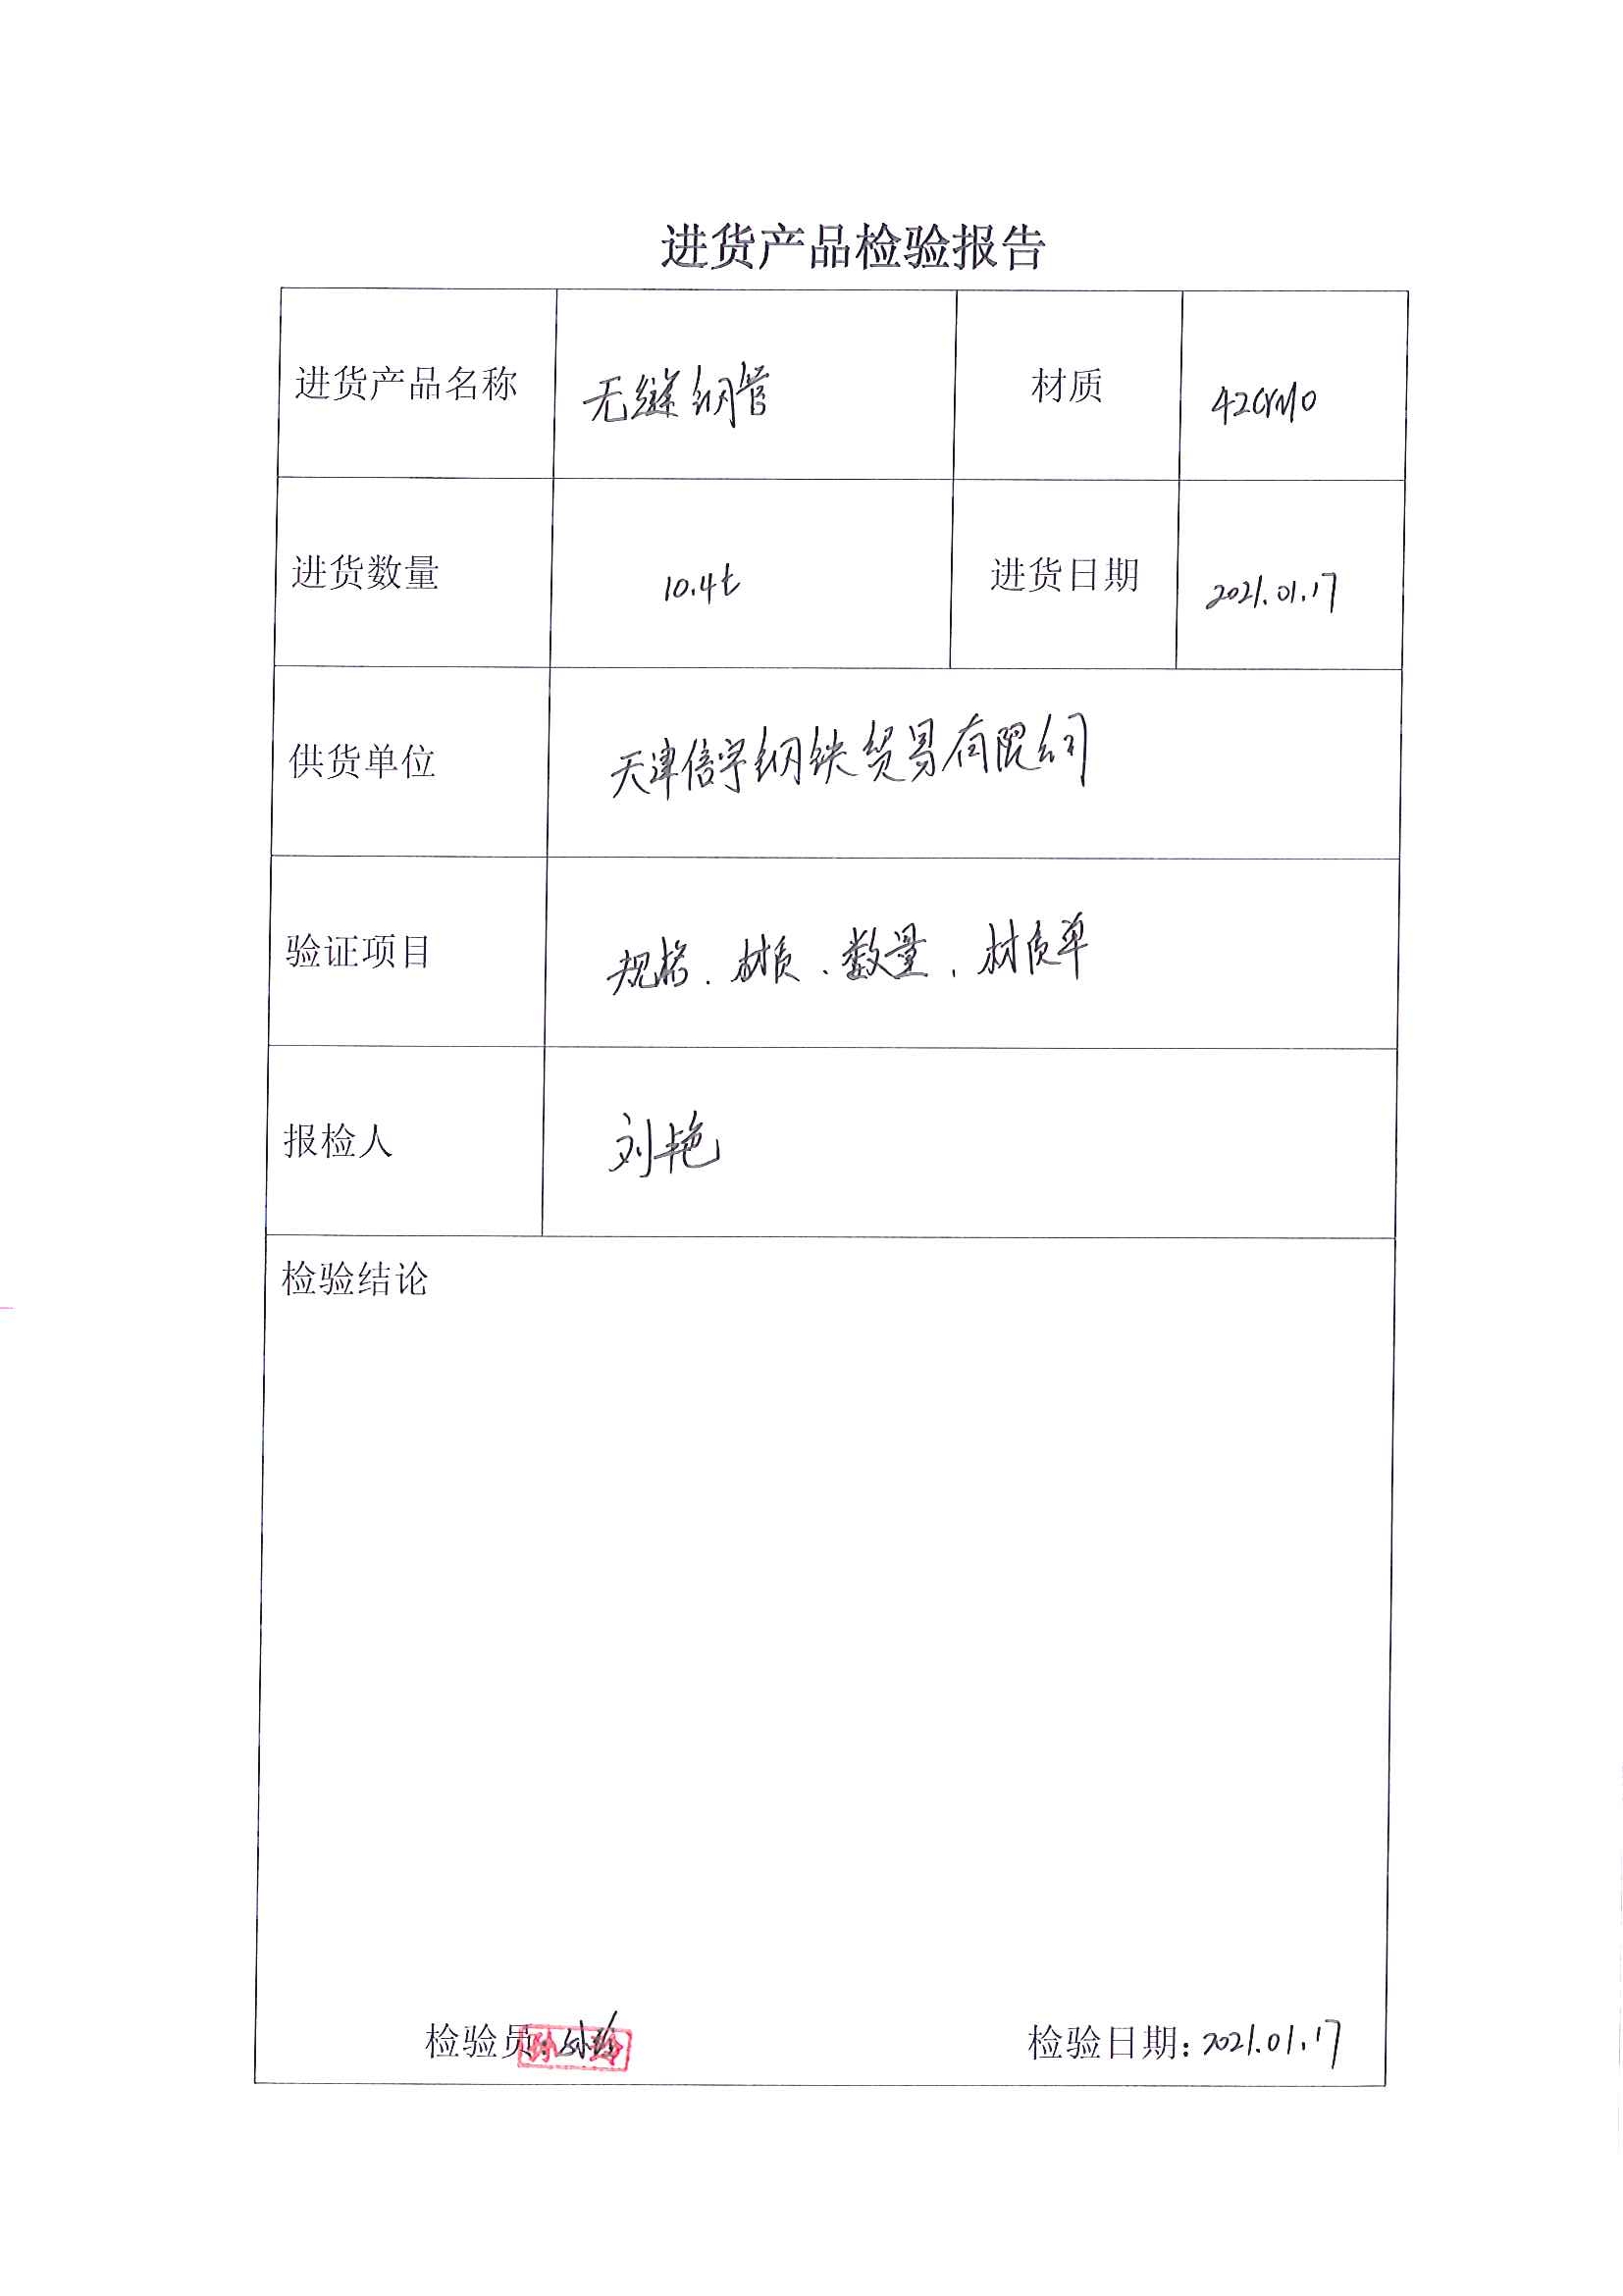 进货产品检验报告
进货产品名称 无缝钢管 材质 42CrMo
进货数量 10.4t 进货日期 2021.01.17
供货单位 天津信宇钢铁贸易有限公司
验证项目 规格、材质、数量、材质单
报检人 刘艳
检验结论
检验员: 孙 检验日期: 2021.01.17